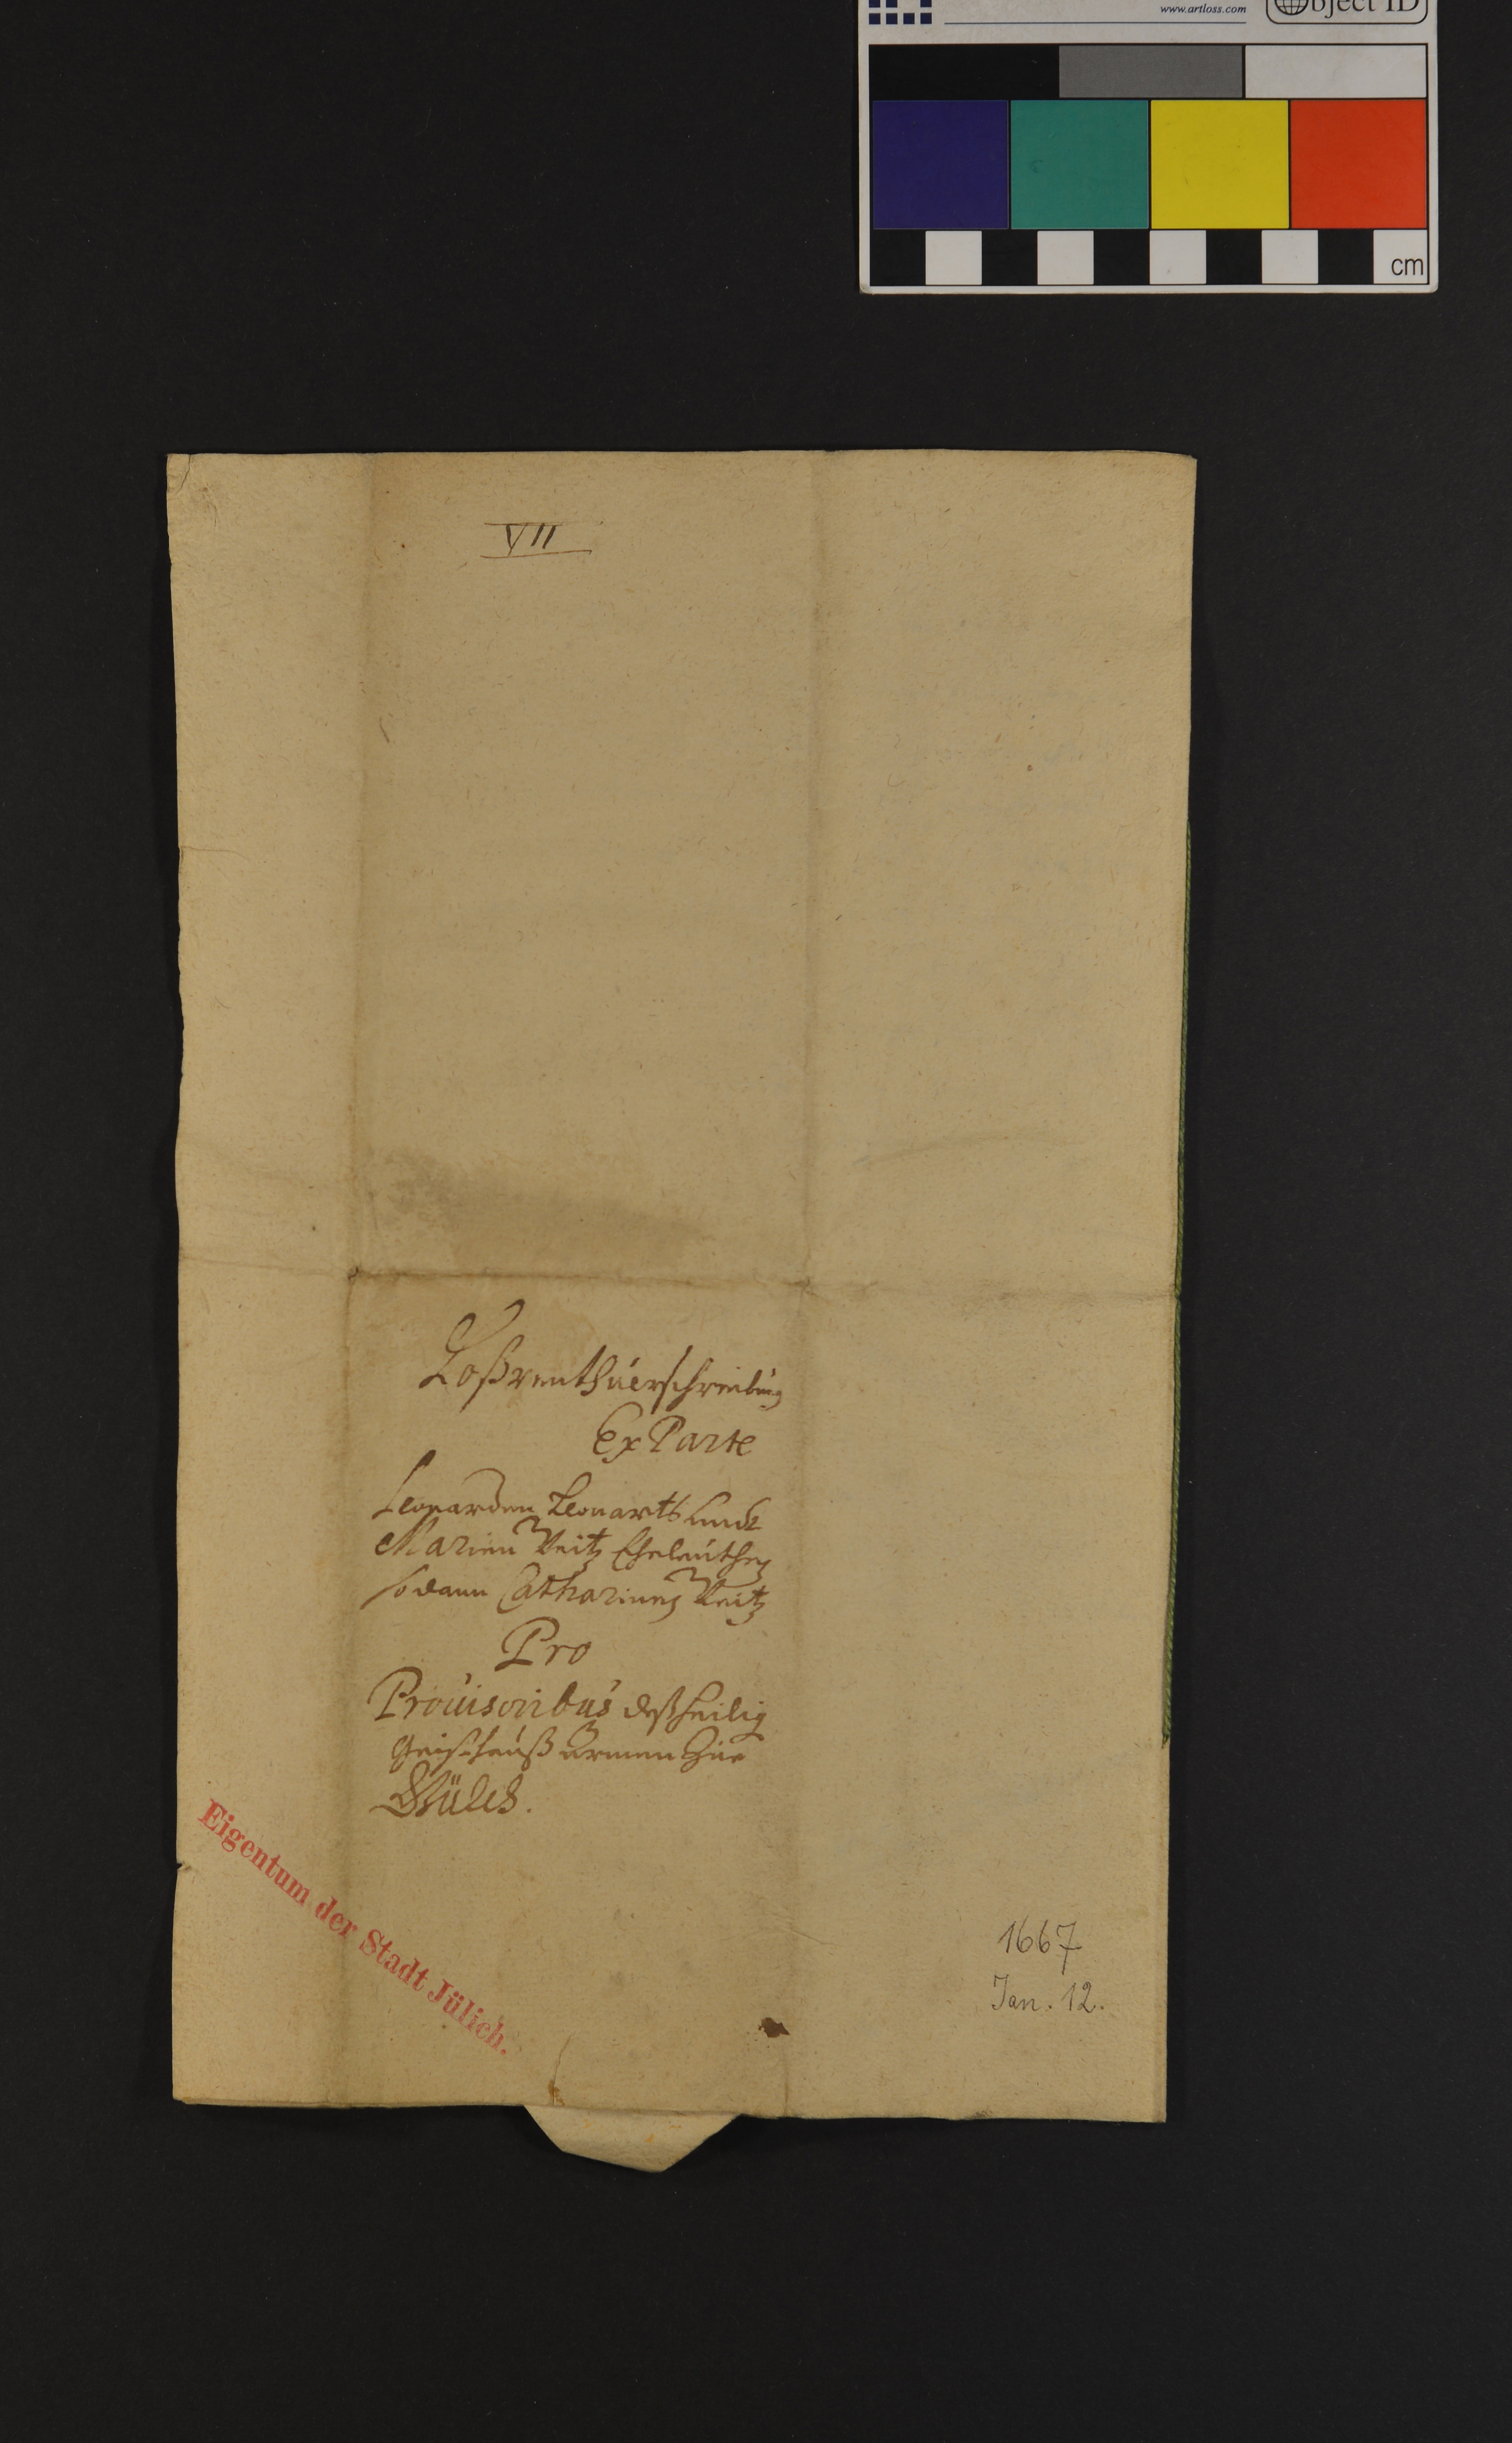 www.artloss.com
bject ID
cm
VII
Loßrenthúerschreibúng
Ex Parte
Leonarden Leonarts undt
Marien Veitz Eheleúthen
sodann Catharinen Veitz
Pro
Prouisoribus deß heilig
Geist haúß armen Zúe
Gúlich.
Eigentum der Stadt Jülich.
1667
Jan. 12.